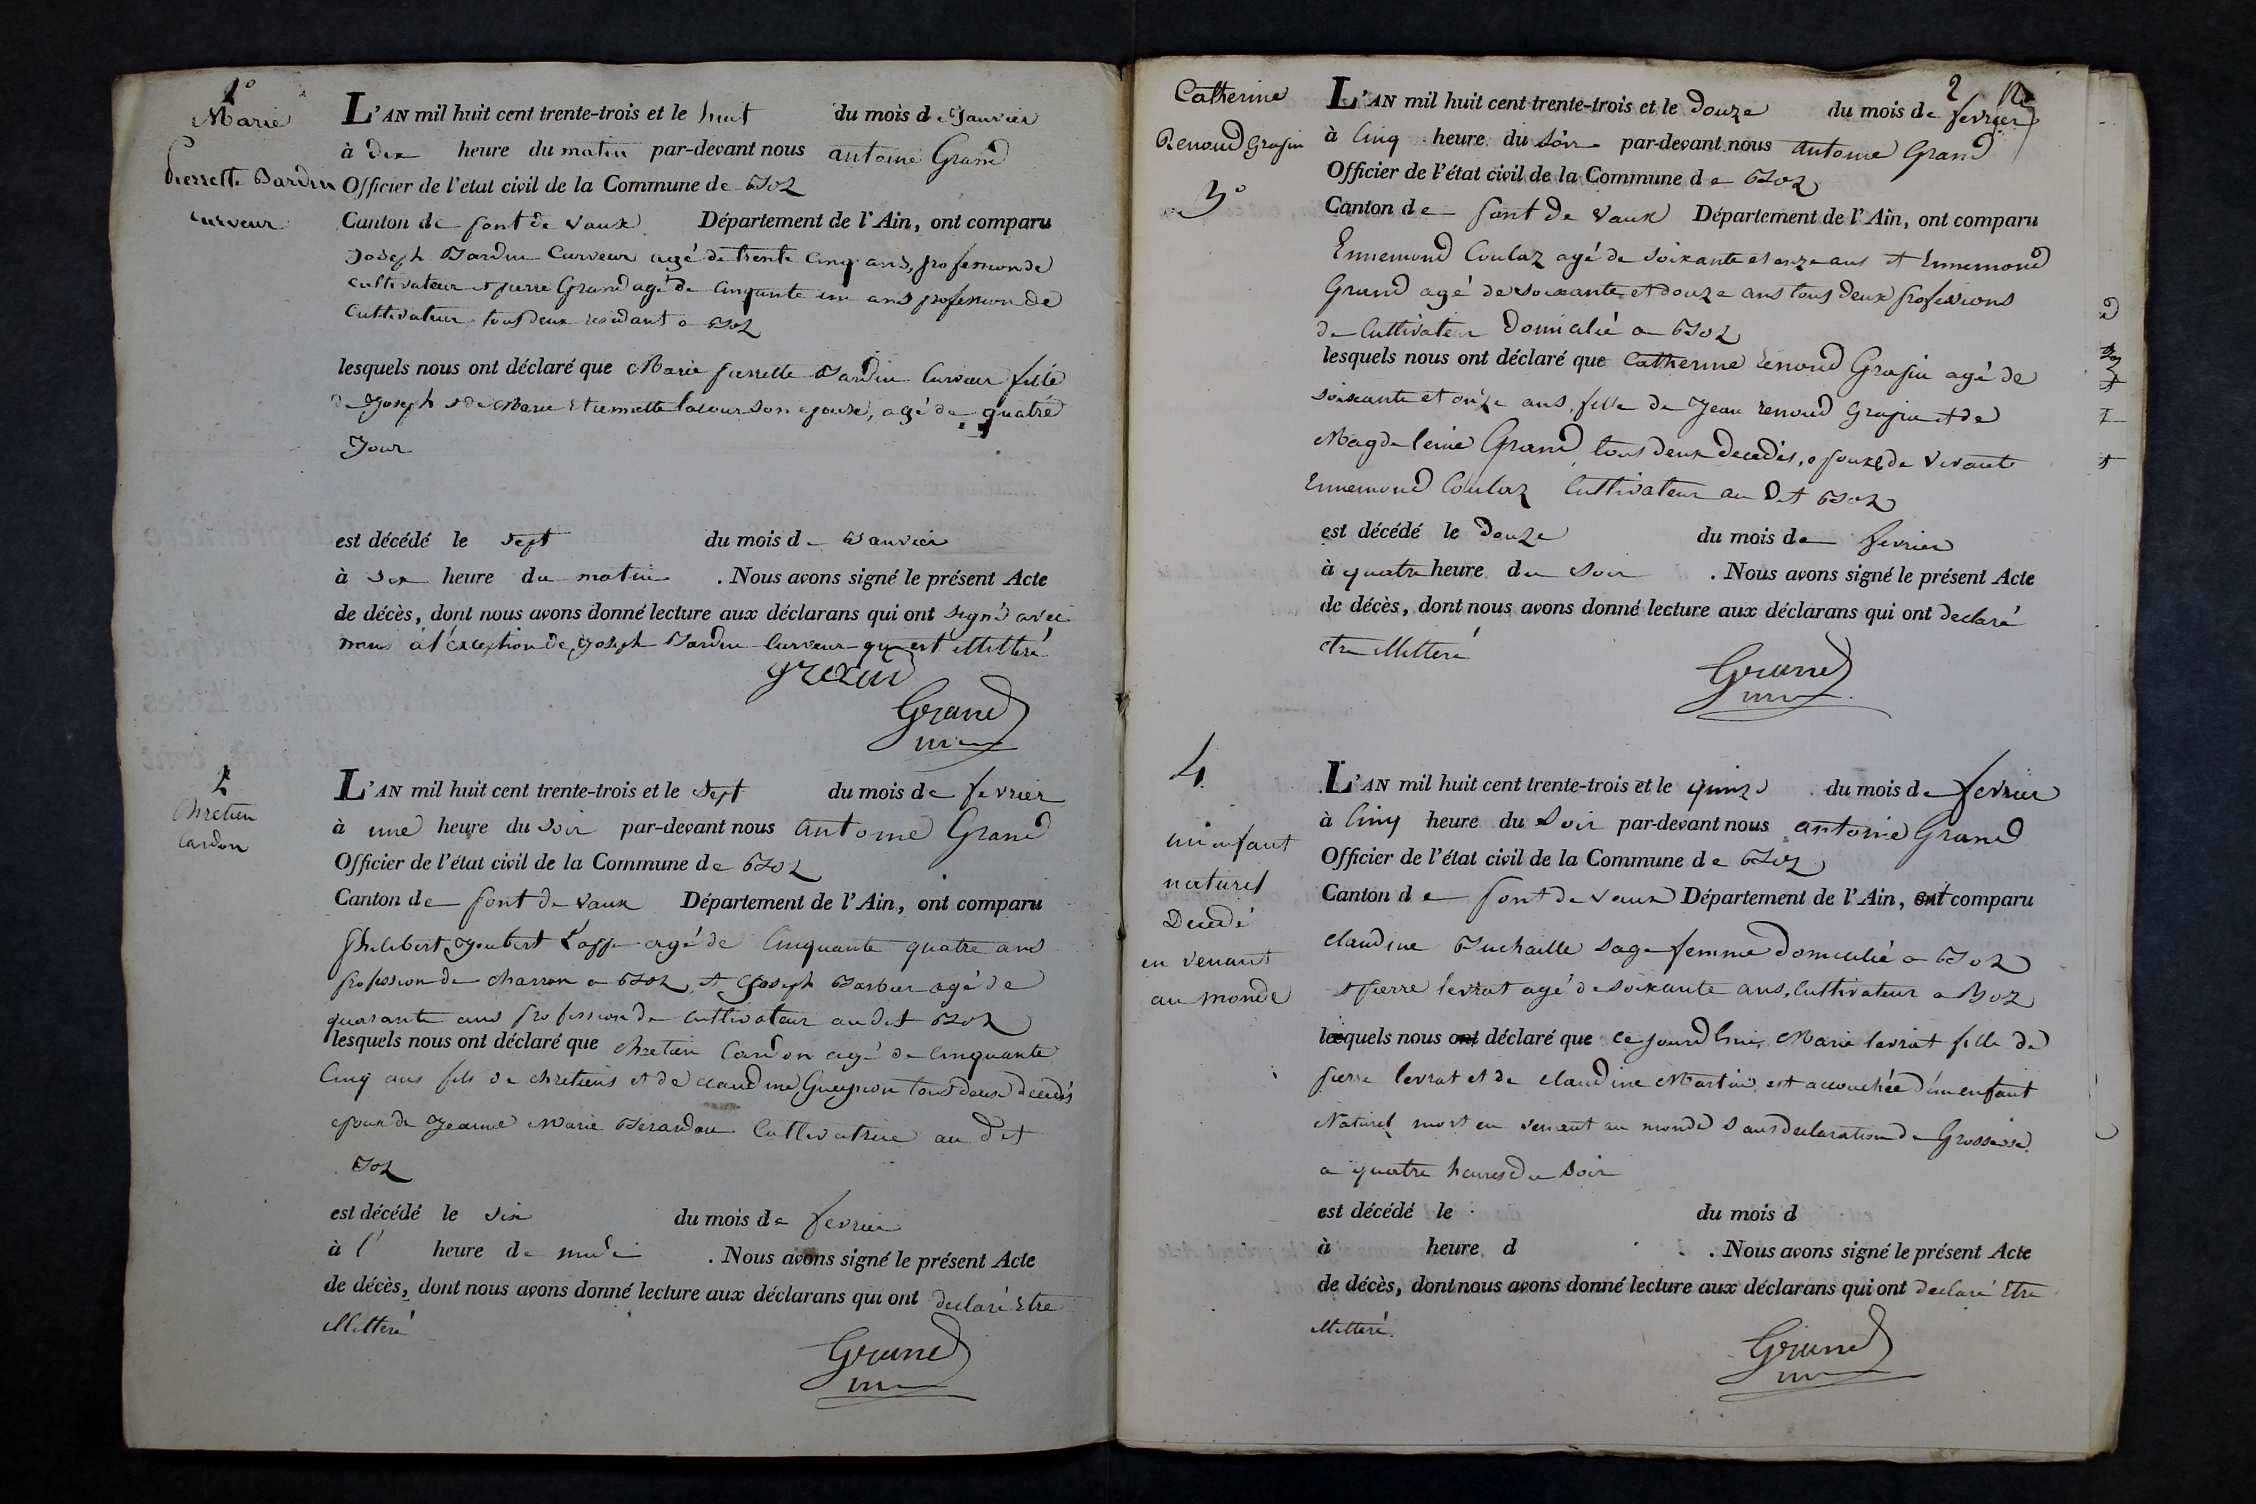 1°
Marie
Pierrette Bardin
curveur
L'AN mil huit cent trente-trois et le huit du mois de Janvier
à dix heure du matin par-devant nous antoine Grand
Officier de l'état civil de la Commune de Boz
Canton de pont de vaux Département de l'Ain, ont comparu
Joseph Bardin Curveur agé de trente cinq ans, profession de
cultivateur et pierre Grand agé de cinquante un ans profession de
Cultivateur tous deux residant a Boz
lesquels nous ont déclaré que Marie pierrette Bardin Curveur fille
de Joseph et de Marie son epouse, agé de quatre
Jour
est décédé le sept du mois de Janvier
à six heure du matin . Nous avons signé le présent Acte
de décès, dont nous avons donné lecture aux déclarans qui ont signé avec
nous à l'exception de Joseph Bardin Curveur qui est illitteré
grand
Grand
2
Chretien
Cardon
L'AN mil huit cent trente-trois et le sept du mois de fevrier
à une heure du soir par-devant nous antoine Grand
Officier de l'état civil de la Commune de Boz
Canton de pont de vaux Département de l'Ain, ont comparu
philibert Joubert agé de Cinquante quatre ans
profession de charron a Boz, et Joseph Barbier agé de
quarante ans profession de cultivateur au dit Boz
lesquels nous ont déclaré que chretien Cardon agé de cinquante
Cinq ans fils de chretiens et de claudine tous deux décedés
epoux de Jeanne Marie Cultivatrice au dit
Boz
est décédé le six du mois de fevrier
à l' heure de midi . Nous avons signé le présent Acte
de décès, dont nous avons donné lecture aux déclarans qui ont declaré Etre
illitteré
Grand
2
Catherine
Renoud Grapin
3°
L'AN mil huit cent trente-trois et le douze du mois de fevrier
à Cinq heure du soir par-devant nous antoine Grand
Officier de l'état civil de la Commune de Boz
Canton de pont de vaux Département de l'Ain, ont comparu
Ennemond Coulaz agé de soixante et onze ans et Ennemond
Grand agé de soixante et douze ans tous deux professions
de Cultivateur domicilié a Boz
lesquels nous ont déclaré que Catherine renoud Grapin agé de
soixante et onze ans, fille de Jean renoud Grapin et de
Magdeleine Grand tous deux decedés, epouse de vivante
Ennemond Coulaz Cultivateur au dit Boz
est décédé le douze du mois de fevrier
à quatre heure du soir . Nous avons signé le présent Acte
de décès, dont nous avons donné lecture aux déclarans qui ont declaré
etre illitteré
Grand
4
un enfant
naturel
Décédé
en venant
au monde
L'AN mil huit cent trente-trois et le quinze du mois de fevrier
à Cinq heure du soir par-devant nous antoine Grand
Officier de l'état civil de la Commune de Boz
Canton de pont de vaux Département de l'Ain, ont comparu
claudine Buchaille sage femme domicilié a Boz
et pierre levrat agé de soixante ans, Cultivateur a Boz
lesquels nous ont déclaré que ce jourd'hui, Marie levrat fille de
pierre levrat et de claudine Martin, est accouchée d'un enfant
Naturel mort en venant au monde sans declaration de Grossesse
a quatre heures du soir
est décédé le du mois d
à heure d . Nous avons signé le présent Acte
de décès, dont nous avons donné lecture aux déclarans qui ont declaré Etre
illitteré.
Grand